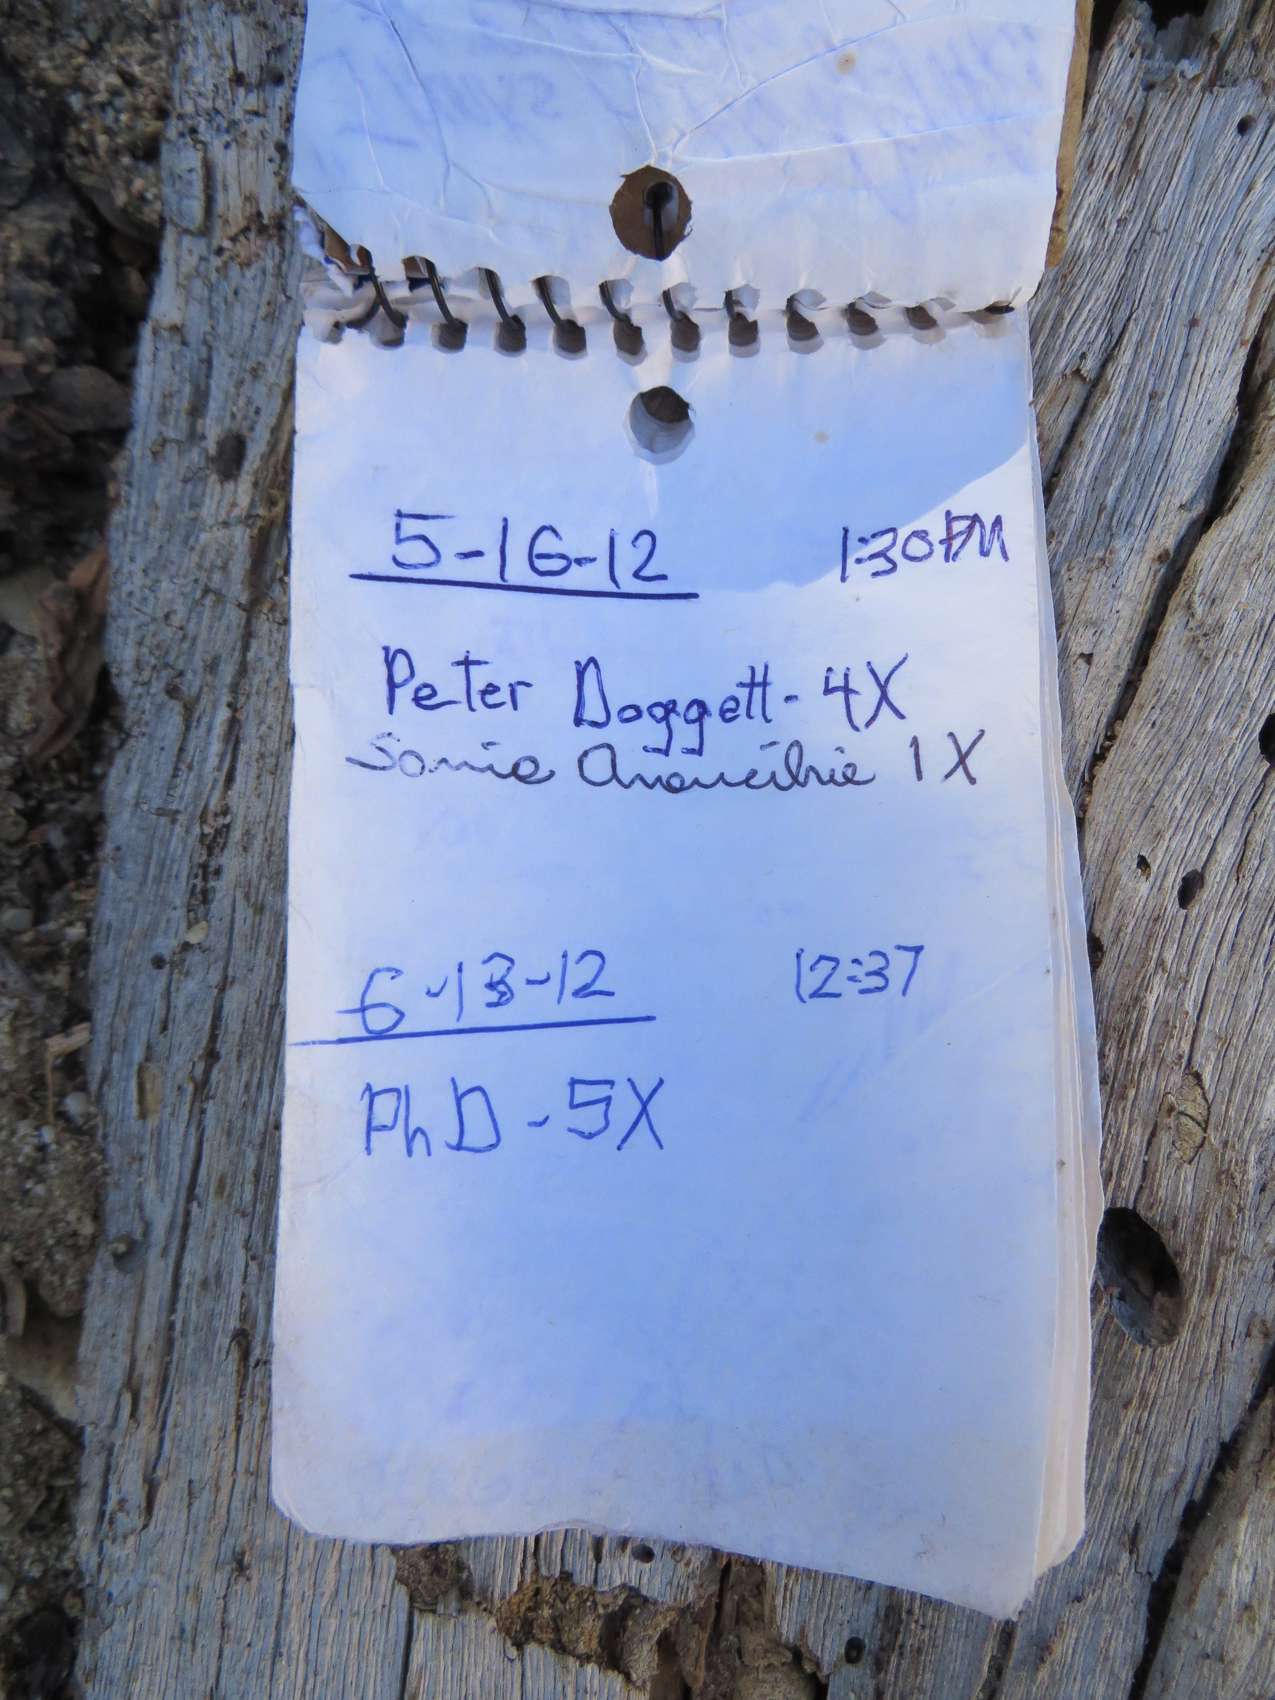 5-16-12 1:30PM
Peter Doggett - 4X
Sonia Arancibia 1X
6-13-12 12:37
PhD - 5X